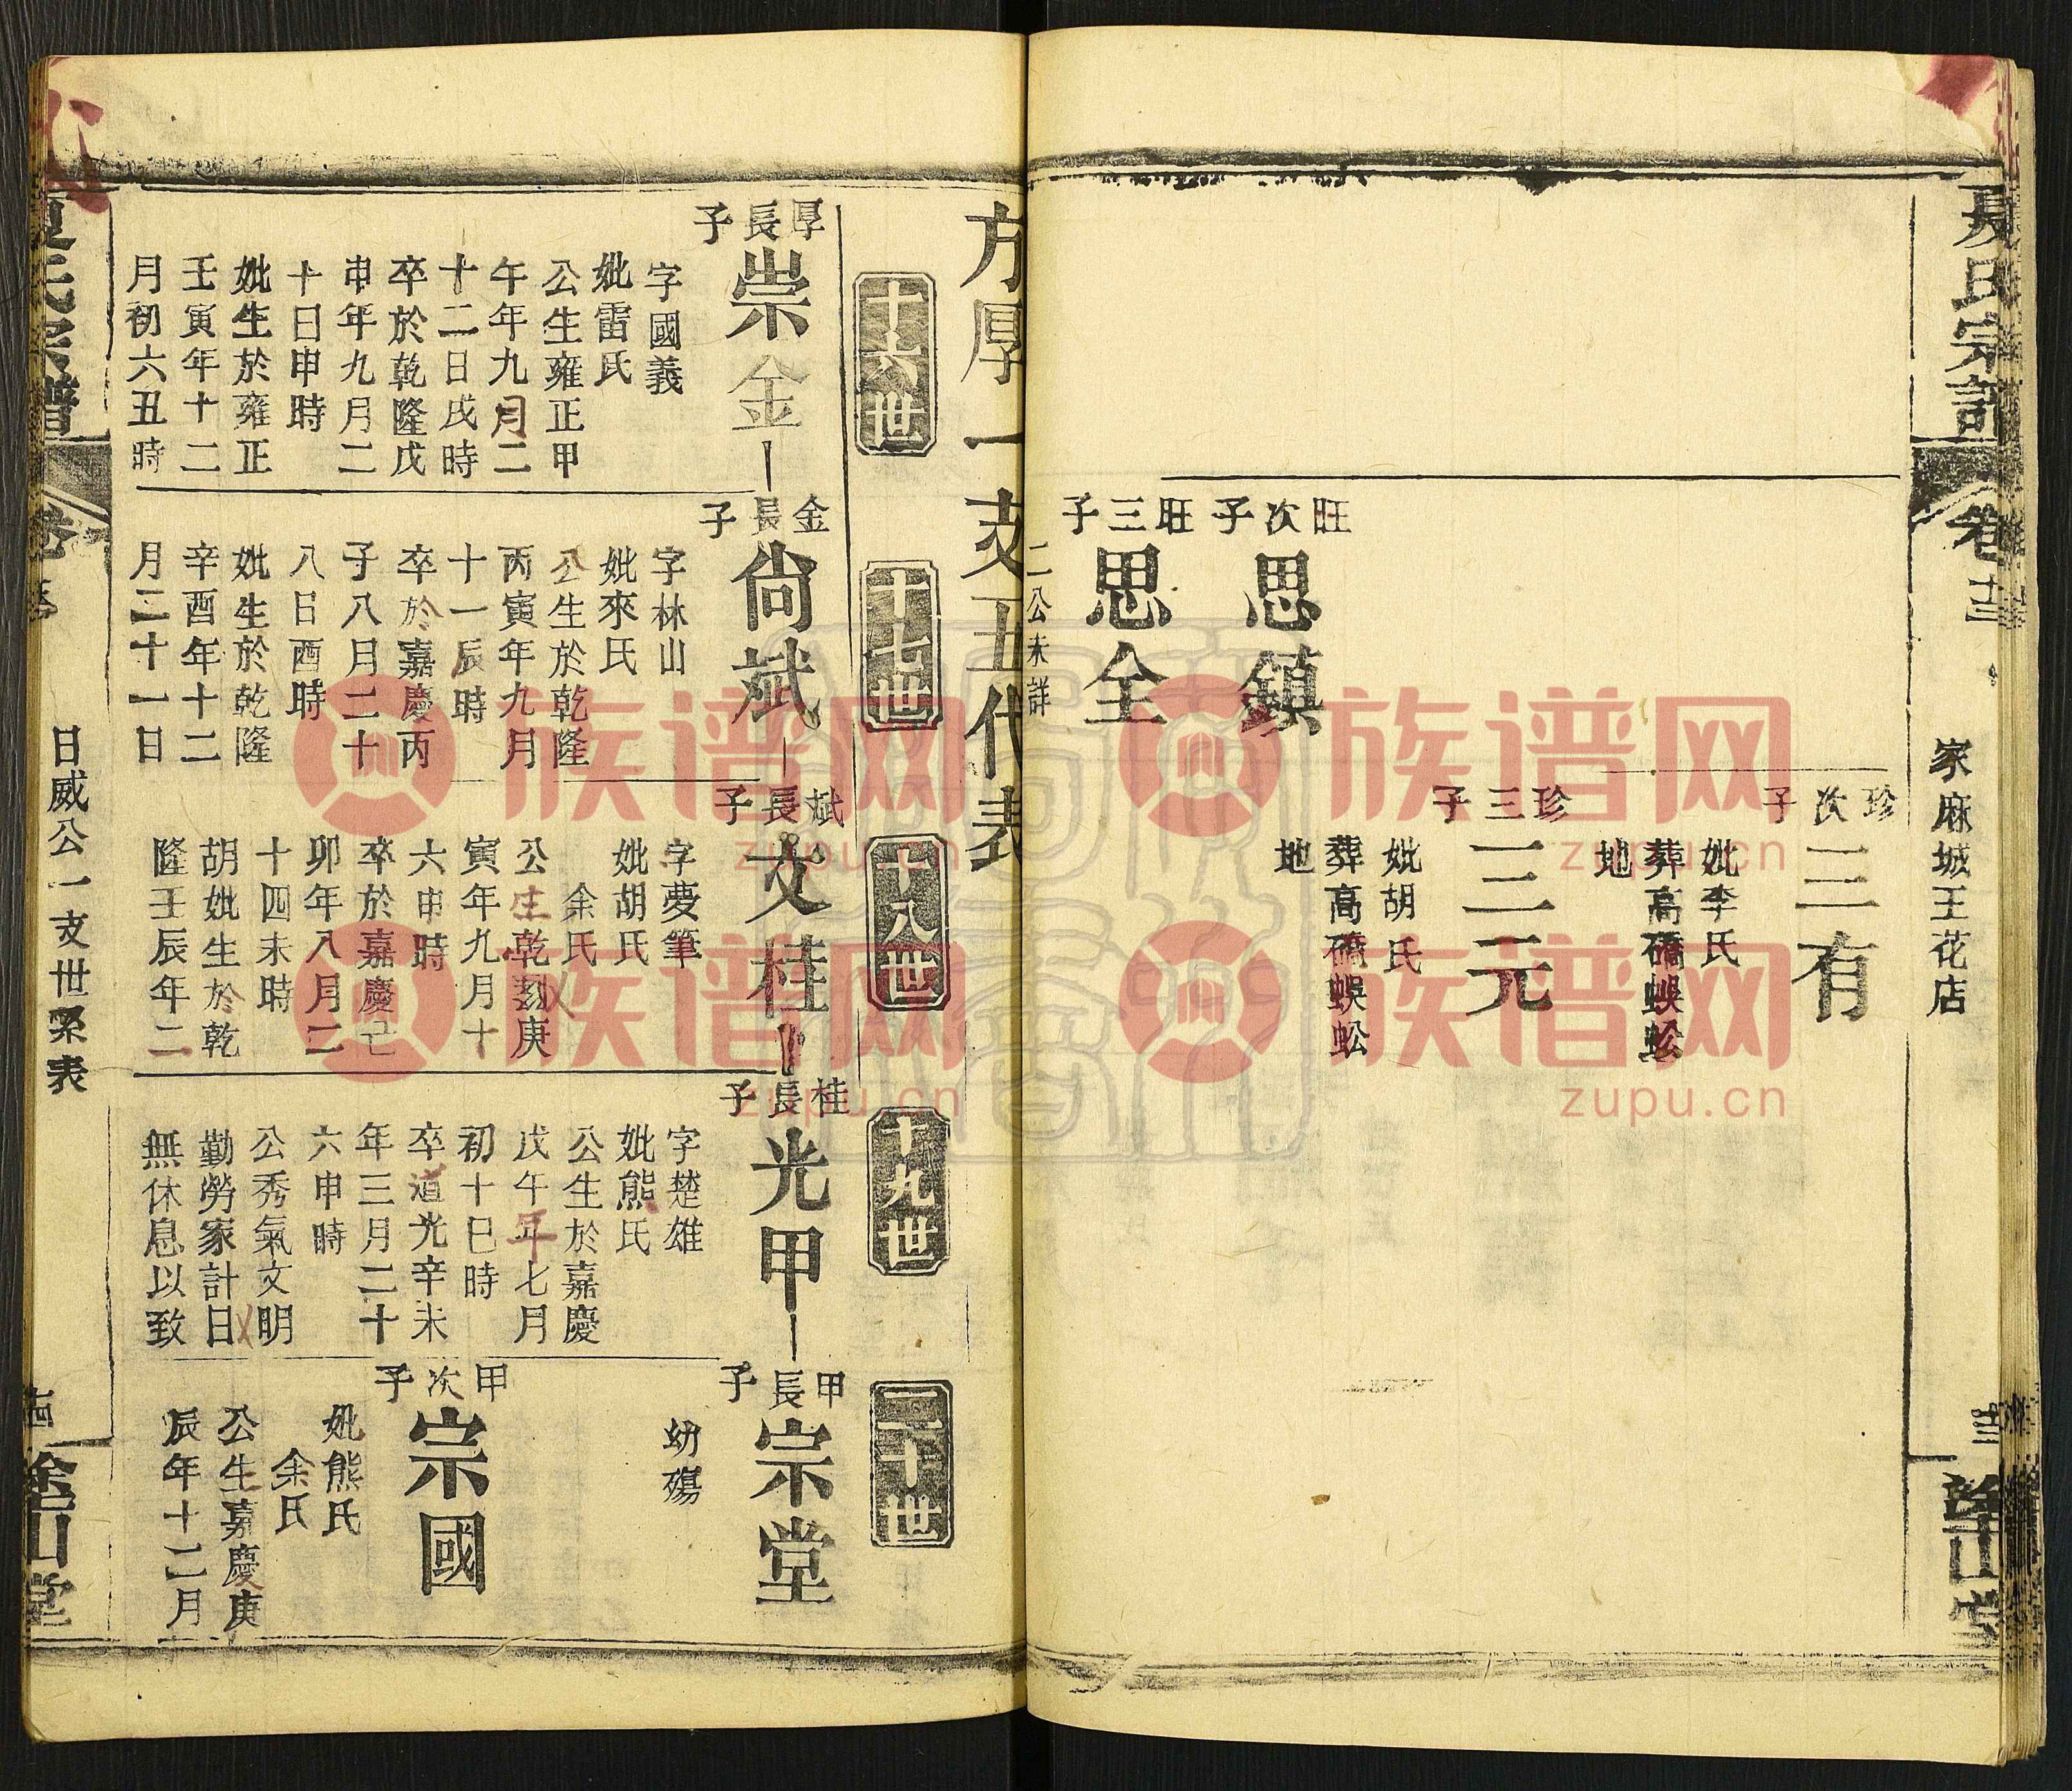 夏氏宗譜
卷十三
家麻城王花店
十三
塗山堂
珍次子
三有
妣李氏
葬高礄蜈蚣
地
珍三子
三元
妣胡氏
葬高礄蜈蚣
地
旺次子
思鎮
旺三子
思全
二公未詳
方厚一支五代表
十六世
十七世
十八世
十九世
二十世
厚長子
崇金
字國義
妣雷氏
公生雍正甲
午年九月二
十二日戌時
卒於乾隆戊
申年九月二
十日申時
妣生於雍正
壬寅年十二
月初六丑時
金長子
尙斌
字林山
妣來氏
公生於乾隆
丙寅年九月
十一辰時
卒於嘉慶丙
子八月二十
八日酉時
妣生於乾隆
辛酉年十二
月二十一日
斌長子
文桂
字夢筆
妣胡氏
余氏
公生乾隆庚
寅年九月十
六申時
卒於嘉慶己
卯年八月二
十四未時
胡妣生於乾
隆壬辰年二
桂長子
光甲
字楚雄
妣熊氏
公生於嘉慶
戊午年七月
初十巳時
卒道光辛未
年三月二十
六申時
公秀氣文明
勤勞家計日
無休息以致
甲長子
宗堂
幼殤
甲次子
宗國
妣熊氏
余氏
公生嘉慶庚
辰年十二月
夏氏宗譜
日威公一支世系表
十四
塗山堂
族谱网
zupu.cn
族谱网
zupu.cn
族谱网
zupu.cn
族谱网
zupu.cn